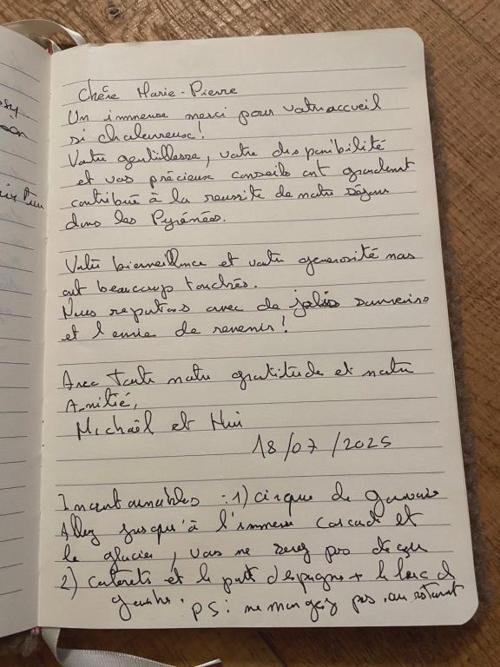 Chère Marie-Pierre
Un immense merci pour votre accueil
si chaleureux !
Votre gentillesse, votre disponibilité
et vos précieux conseils ont grandement
contribué à la réussite de notre séjour
dans les Pyrénées.
Votre bienveillance et votre générosité nous
ont beaucoup touchés.
Nous repartons avec de jolis souvenirs
et l'envie de revenir !
Avec toute notre gratitude et notre
Amitié,
Michaël et Hui
18/07/2025
Incontournables : 1) cirque de gavarnie
Allez jusqu'à l'immense cascade et
le glacier, vous ne serez pas déçus
2) cauterets et le pont d'espagne + le lac de
gaube. PS : ne mangez pas au restaurant